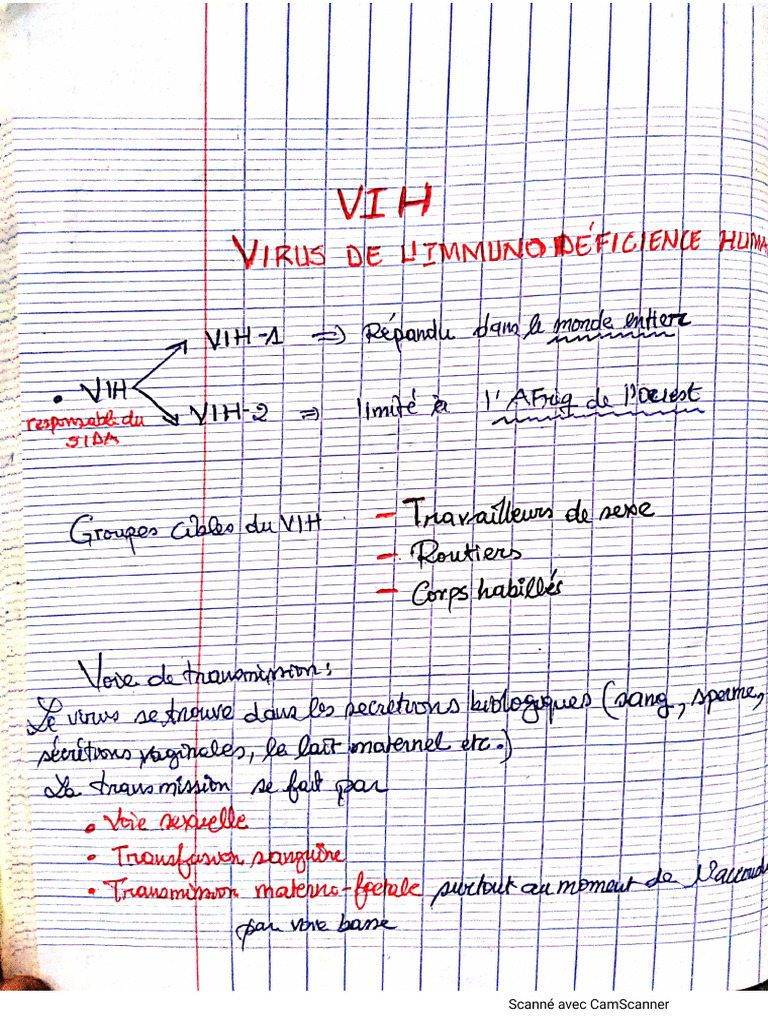 VIH
VIRUS DE L'IMMUNO DÉFICIENCE HUMA
VIH-1 => Répandu dans le monde entier
• VIH
responsable du
SIDA
VIH-2 => limité à l'AFriq de l'Ouest
Groupes cibles du VIH
- Travailleurs de sexe
- Routiers
- Corps habillés
Voie de transmission :
Le virus se trouve dans les secrétions biologiques (sang, sperme,
sécrétions vaginales, le lait maternel etc.)
La transmission se fait par
• Voie sexuelle
• Transfusion sanguine
• Transmission materno-foetale surtout au moment de l'accouch
par voie basse
Scanné avec CamScanner